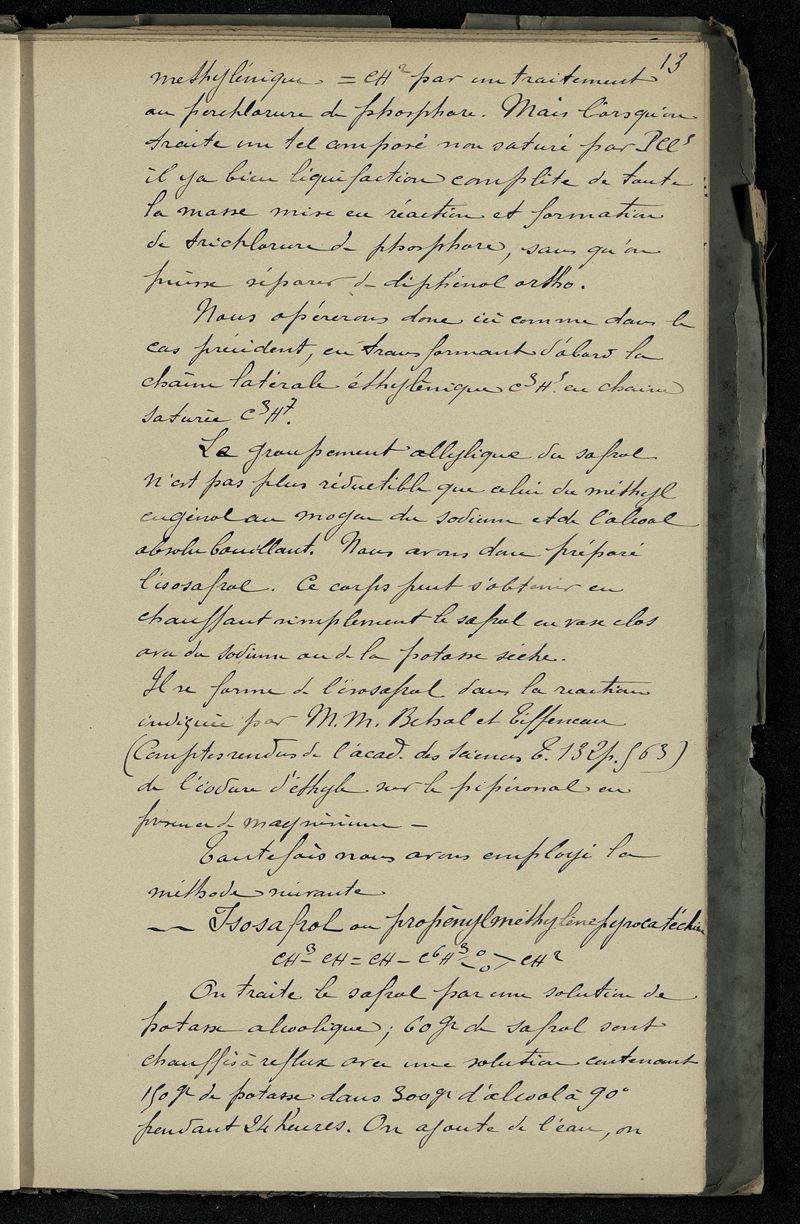 13
methylénique = CH² par un traitement
au perchlorure de phosphore. Mais lorsqu'on
traite un tel composé non saturé par PCl⁵
il y a bien liquéfaction complète de toute
la masse mise en réaction et formation
de trichlorure de phosphore, sans qu'on
puisse séparer de diphénol ortho.
Nous opérerons donc ici comme dans le
cas précédent, en transformant d'abord la
chaîne latérale éthylénique C³H⁵ en chaine
saturée C³H⁷.
Le groupement allylique du safrol
n'est pas plus réductible que celui du méthyl
eugénol au moyen du sodium et de l'alcool
absolu bouillant. Nous avons donc préparé
l'isosafrol. Ce corps peut s'obtenir en
chauffant simplement le safrol en vase clos
avec du sodium ou de la potasse sèche.
Il se forme de l'isosafrol dans la reaction
indiquée par M.M. Behal et Tiffeneau
(Comptes rendus de l'acad. des Sciences T. 132 p. 563)
de l'iodure d'éthyle sur le pipéronal en
présence de magnésium —
Toutefois nous avons employé la
méthode suivante
— Isosafrol ou propénylméthylènepyrocatéchine
CH³ - CH = CH - C⁶H³ <O O> CH²
On traite le safrol par une solution de
potasse alcoolique ; 60gr de safrol sont
chauffés à reflux avec une solution contenant
150gr de potasse dans 300gr d'alcool à 90°
pendant 24 heures. On ajoute de l'eau, on